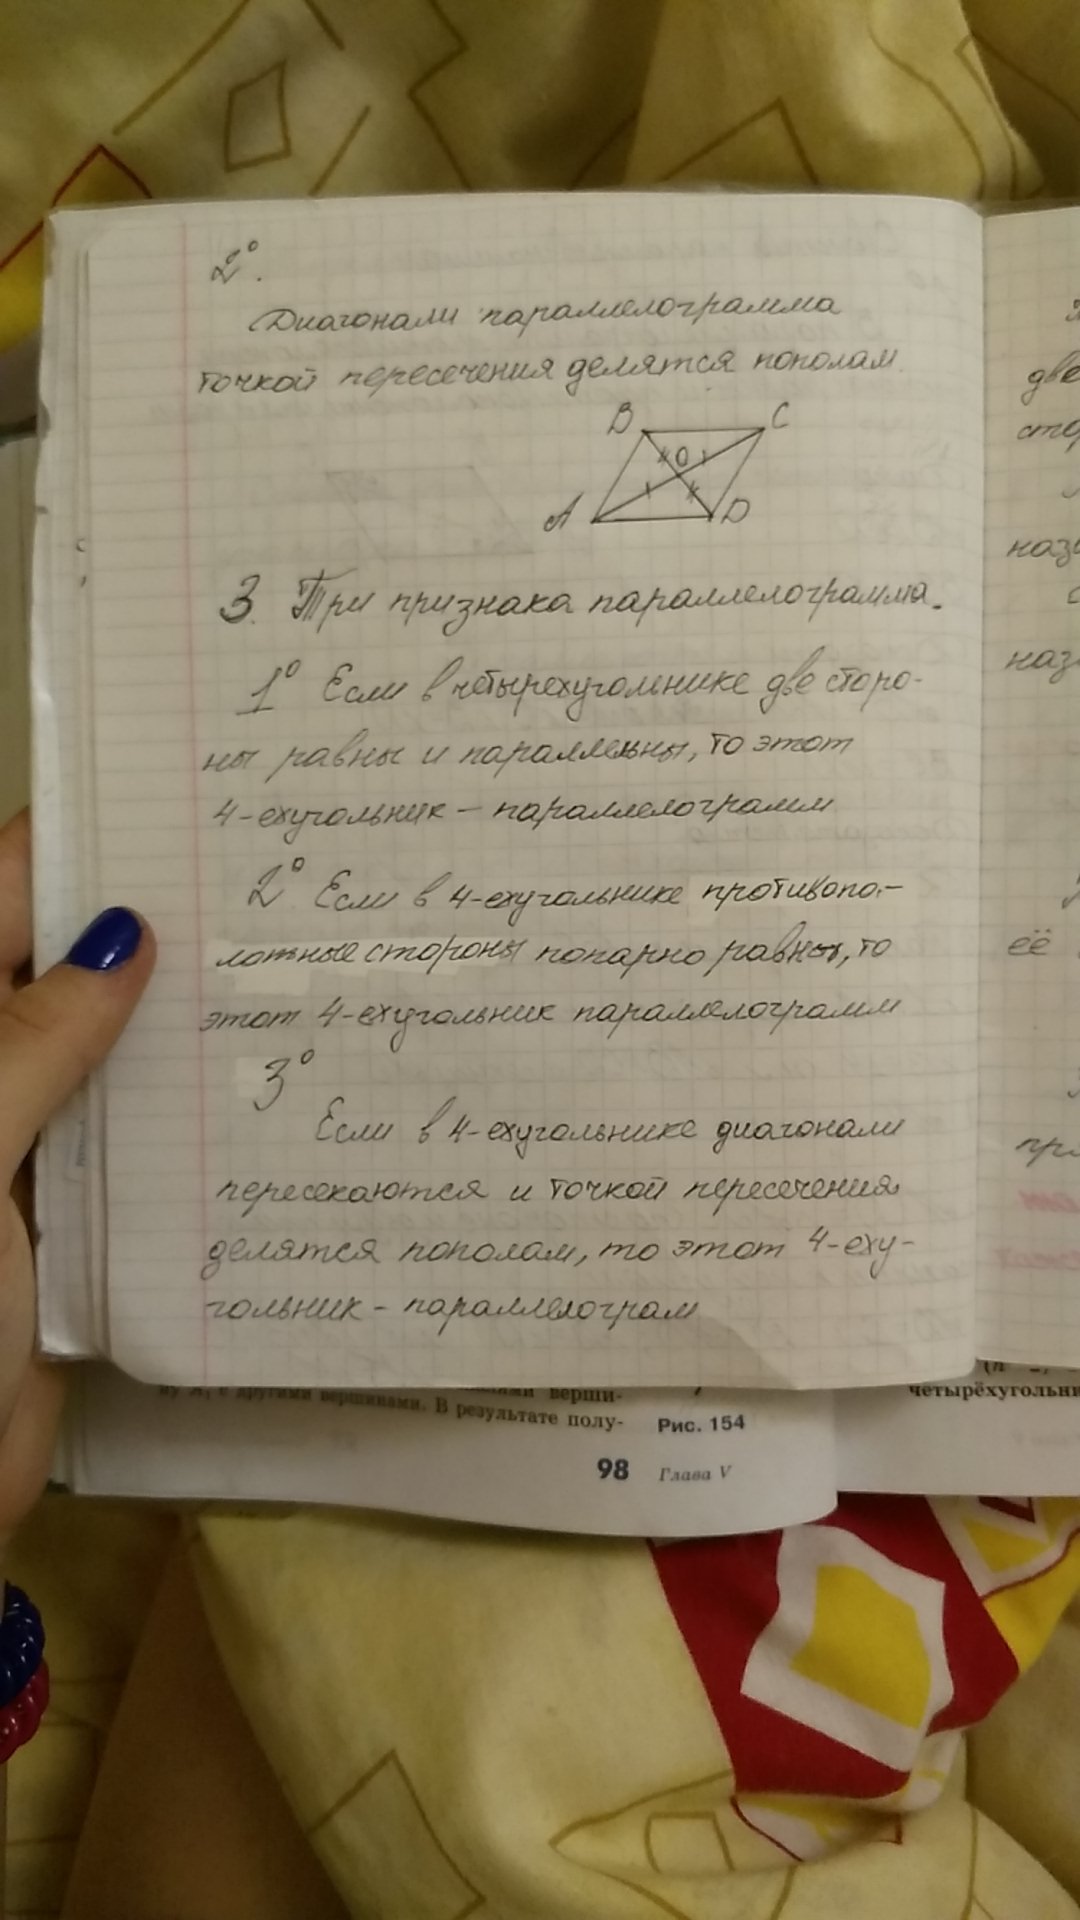 2°.
Диагонали параллелограмма
точкой пересечения делятся пополам.
B C
O
A D
3. Три признака параллелограмма.
1° Если в четырехугольнике две сторо-
ны равны и параллельны, то этот
4-ехугольник – параллелограмм
2° Если в 4-ехугольнике противопо-
ложные стороны попарно равны, то
этот 4-ехугольник параллелограмм
3°
Если в 4-ехугольнике диагонали
пересекаются и точкой пересечения
делятся пополам, то этот 4-еху-
гольник - параллелограм
две
её
с другими вершинами. В результате полу-
Рис. 154
98 Глава V